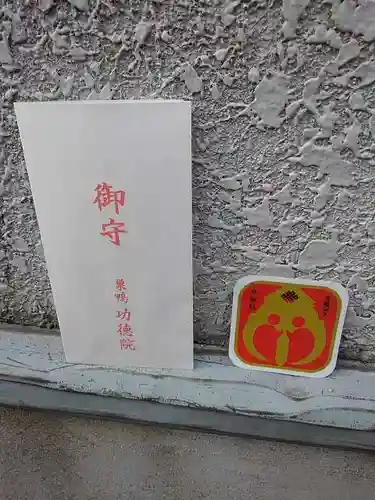 御守
巣鴨 功徳院